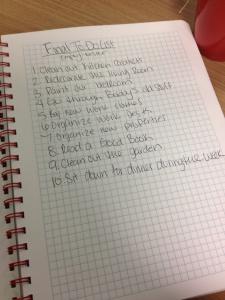 Final To Do List
1. Clean out Kitchen Cabinets
2. Redecorate the living Room
3. Paint our bedroom
4. Go through Baddy's old stuff
5. Buy new work clothes
6. Organize work desk
7. Organize new properties
8. Read a Good Book
9. Clean out the garden
10. Sit down for dinner during the week